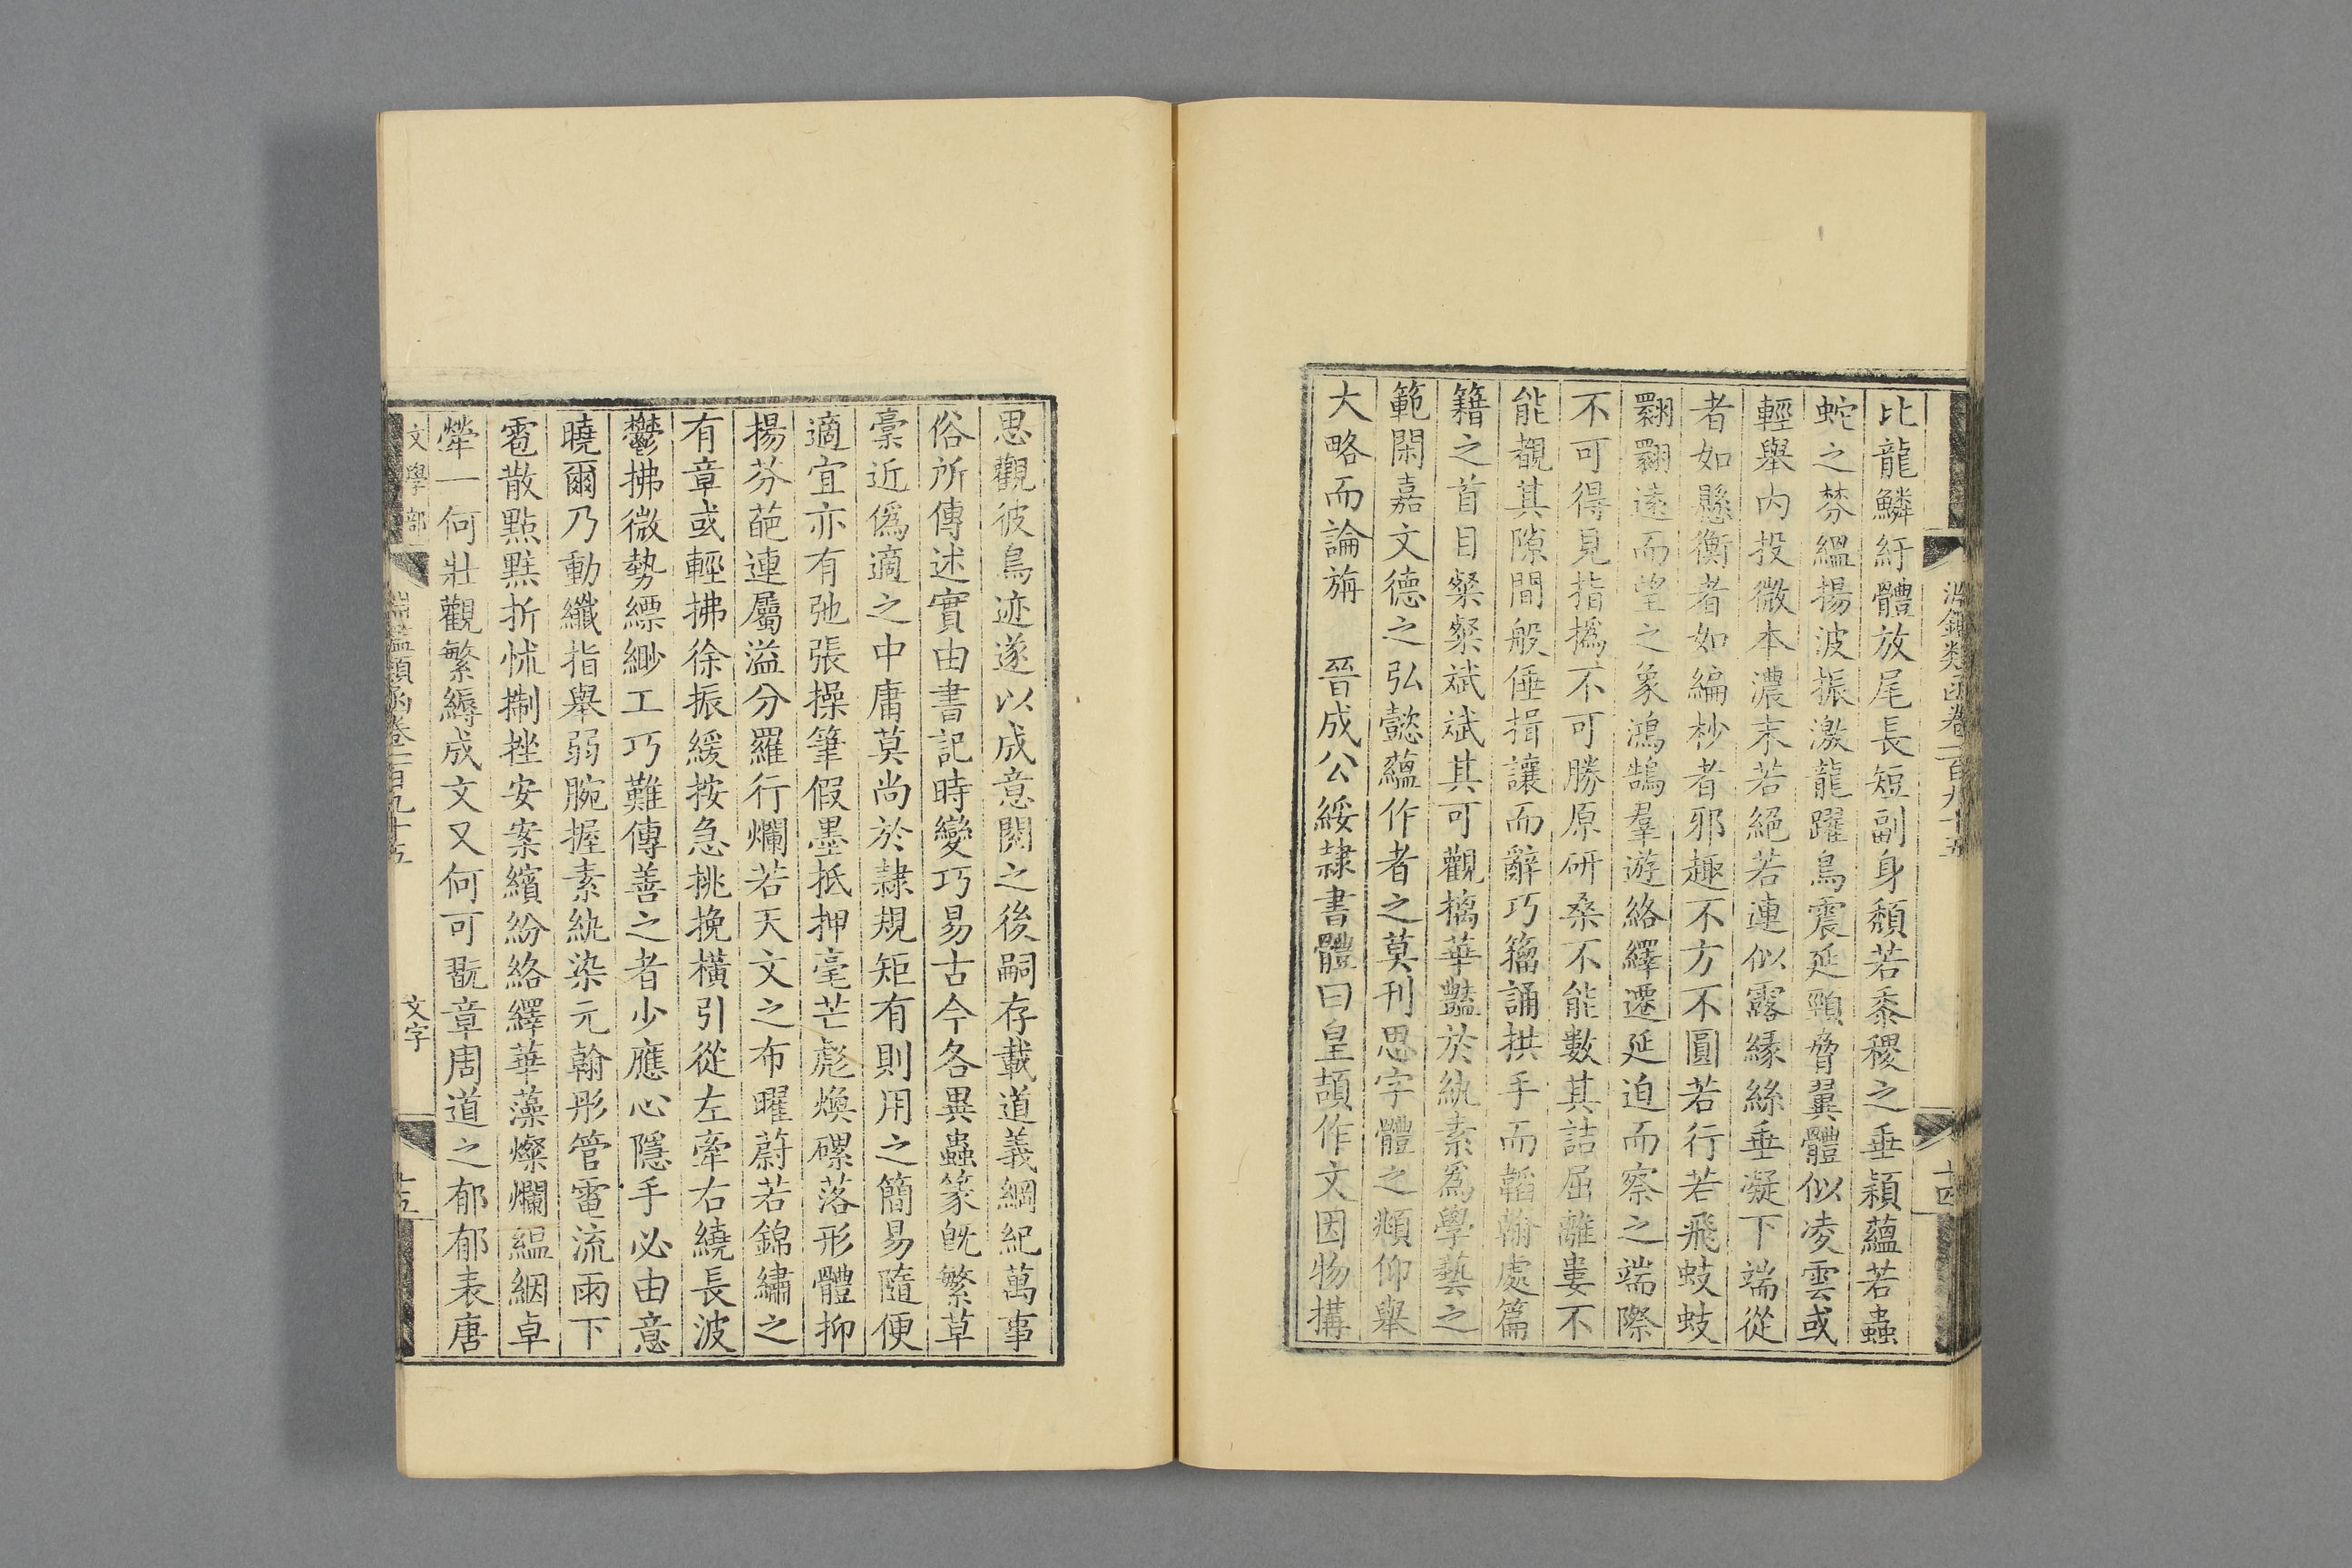 淵鑑類函卷一百九十五
十四
比龍鱗紆體放尾長短副身頹若黍稷之垂穎蘊若蟲
蛇之棼縕揚波振激龍躍鳥震延頸脅翼體似凌雲或
輕舉内投微本濃末若絕若連似露緣絲垂凝下端從
者如懸衡者如編杪者邪趣不方不圓若行若飛蚑蚑
翾翾遠而望之象鴻鵠羣遊絡繹遷延迫而察之端際
不可得見指撝不可勝原研桑不能數其詰屈離婁不
能覩其隙間般倕揖讓而辭巧籀誦拱手而韜翰處篇
籍之首目粲粲斌斌其可觀摛華豔於紈素爲學藝之
範閑嘉文德之弘懿蘊作者之莫刊思字體之頫仰舉
大略而論旃　晉成公綏隷書體曰皇頡作文因物搆
思觀彼鳥迹遂以成意閱之後嗣存載道義綱紀萬事
俗所傳述實由書記時變巧易古今各異蟲篆旣繁草
藁近僞適之中庸莫尚於隷規矩有則用之簡易隨便
適宜亦有弛張操筆假墨抵押毫芒彪煥磥落形體抑
揚芬葩連屬溢分羅行爛若天文之布曜蔚若錦繡之
有章或輕拂徐振緩按急挑挽橫引從左牽右繞長波
鬱拂微勢縹緲工巧難傳善之者少應心隱手必由意
曉爾乃動纖指舉弱腕握素紈染元翰彤管電流雨下
雹散點㸃折㤜掣挫安案繽紛絡繹華藻燦爛縕絪卓
犖一何壯觀繁縟成文又何可翫章周道之郁郁表唐
文學部
淵鑑類函卷一百九十五
文字
十五